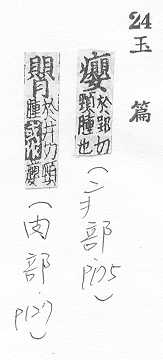 24
玉篇
癭 於郢切
頸腫也
(疒部. p175)
於井切頸
腫或作癭
(肉部. p127)